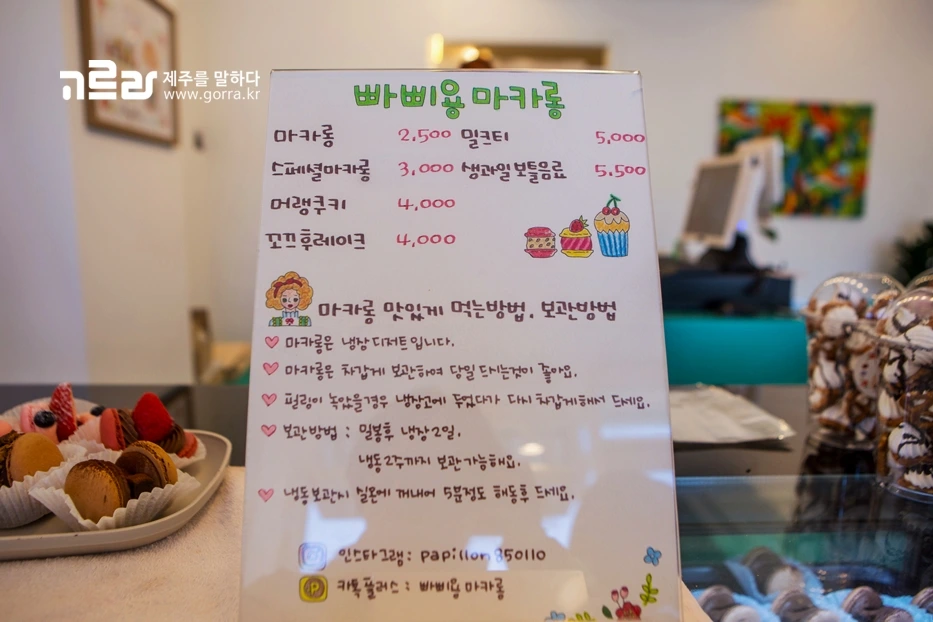 고르라 제주를 말하다
www.gorra.kr
빠삐용 마카롱
마카롱 2,500 밀크티 5,000
스페셜마카롱 3,000 생과일보틀음료 5,500
머랭쿠키 4,000
꼬끄후레이크 4,000
마카롱 맛있게 먹는방법, 보관방법
마카롱은 냉장 디저트입니다.
마카롱은 차갑게 보관하여 당일 드시는것이 좋아요.
필링이 녹았을경우 냉장고에 두었다가 다시 차갑게해서 드세요.
보관방법 : 밀봉후 냉장2일,
냉동2주까지 보관가능해요.
냉동보관시 실온에 꺼내어 5분정도 해동후 드세요.
인스타그램 : papillon850110
카톡플러스 : 빠삐용마카롱